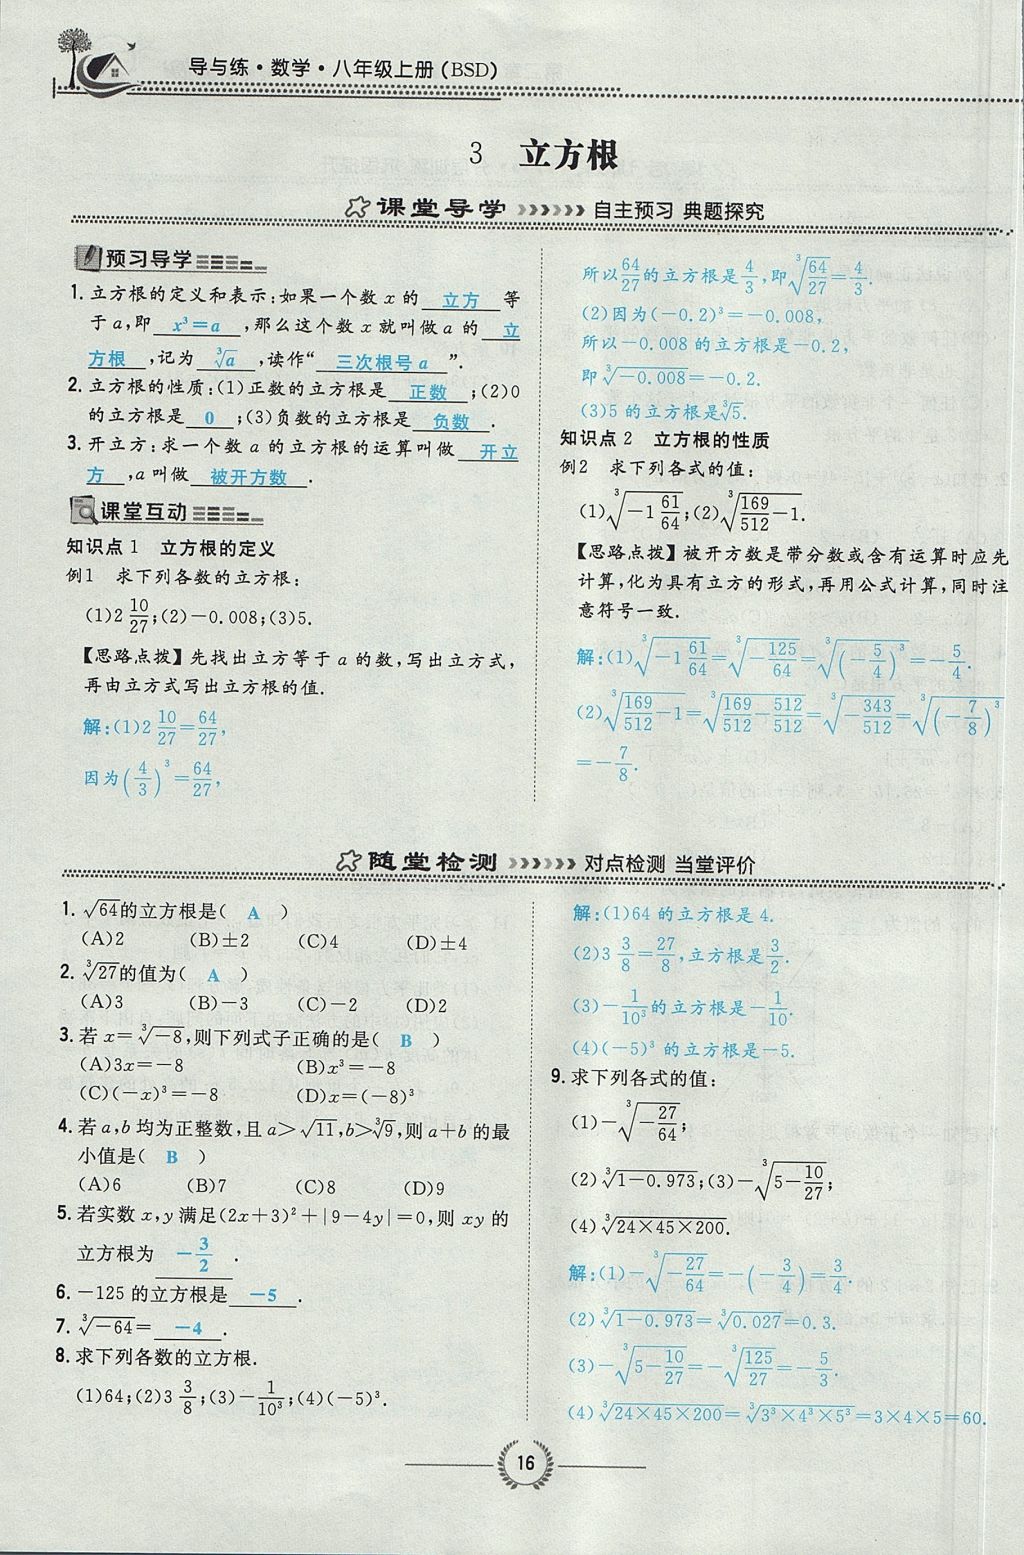 导与练·数学·八年级上册(BSD)
3 立方根
课堂导学 自主预习 典题探究
预习导学
1. 立方根的定义和表示:如果一个数 x 的 立方 等
于 a,即 x³=a ,那么这个数 x 就叫做 a 的 立
方根 ,记为 ∛a ,读作“ 三次根号 a ”.
2. 立方根的性质:(1)正数的立方根是 正数 ;(2)0
的立方根是 0 ;(3)负数的立方根是 负数 .
3. 开立方:求一个数 a 的立方根的运算叫做 开立
方 ,a 叫做 被开方数 .
课堂互动
知识点 1 立方根的定义
例1 求下列各数的立方根:
(1)2 10/27;(2)-0.008;(3)5.
【思路点拨】先找出立方等于 a 的数,写出立方式,
再由立方式写出立方根的值.
解:(1)2 10/27=64/27,
因为(4/3)³=64/27,
所以64/27的立方根是4/3,即∛(64/27)=4/3.
(2)因为(-0.2)³=-0.008,
所以-0.008 的立方根是-0.2,
即∛(-0.008)=-0.2.
(3)5 的立方根是∛5.
知识点 2 立方根的性质
例2 求下列各式的值:
(1)∛(-1 61/64);(2)∛(169/512-1).
【思路点拨】被开方数是带分数或含有运算时应先
计算,化为具有立方的形式,再用公式计算,同时注
意符号一致.
解:(1)∛(-1 61/64)=∛(-125/64)=∛((-5/4)³)=-5/4.
(2)∛(169/512-1)=∛(169/512-512/512)=∛(-343/512)=∛((-7/8)³)
=-7/8.
随堂检测 对点检测 当堂评价
1. √64的立方根是( A )
(A)2 (B)±2 (C)4 (D)±4
2. ∛27的值为( A )
(A)3 (B)-3 (C)-2 (D)2
3. 若 x=∛(-8),则下列式子正确的是( B )
(A)3x=-8 (B)x³=-8
(C)(-x)³=-8 (D)x=(-8)³
4. 若 a,b 均为正整数,且 a>√11,b>∛9,则 a+b 的最
小值是( B )
(A)6 (B)7 (C)8 (D)9
5. 若实数 x,y 满足(2x+3)²+|9-4y|=0,则 xy 的
立方根为 -3/2 .
6. -125 的立方根是 -5 .
7. ∛(-64)= -4 .
8. 求下列各数的立方根.
(1)64;(2)3 3/8;(3)-1/10³;(4)(-5)³.
解:(1)64 的立方根是 4.
(2)3 3/8=27/8,立方根是3/2.
(3)-1/10³的立方根是-1/10.
(4)(-5)³ 的立方根是-5.
9. 求下列各式的值:
(1)-∛(-27/64);
(2)∛(1-0.973);(3)-∛(5-10/27);
(4)∛(24×45×200).
解:(1)-∛(-27/64)=-(-3/4)=3/4.
(2)∛(1-0.973)=∛0.027=0.3.
(3)-∛(5-10/27)=-∛(125/27)=-5/3.
(4)∛(24×45×200)=∛(3³×4³×5³)=3×4×5=60.
16